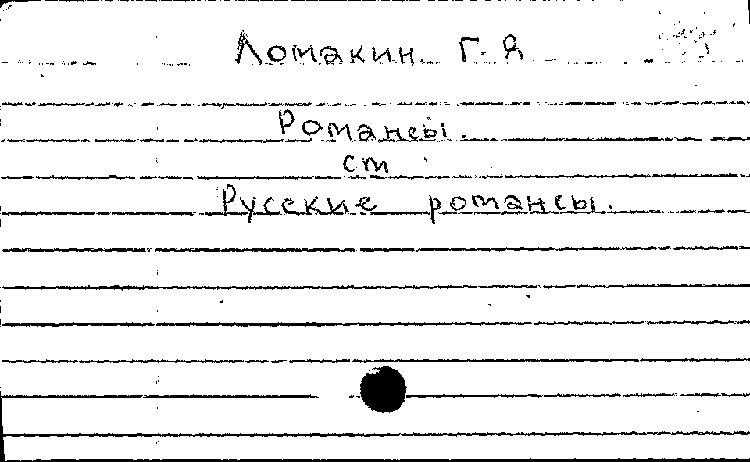 Ломакин Г. Я
Романсы.
ст
Русские романсы.